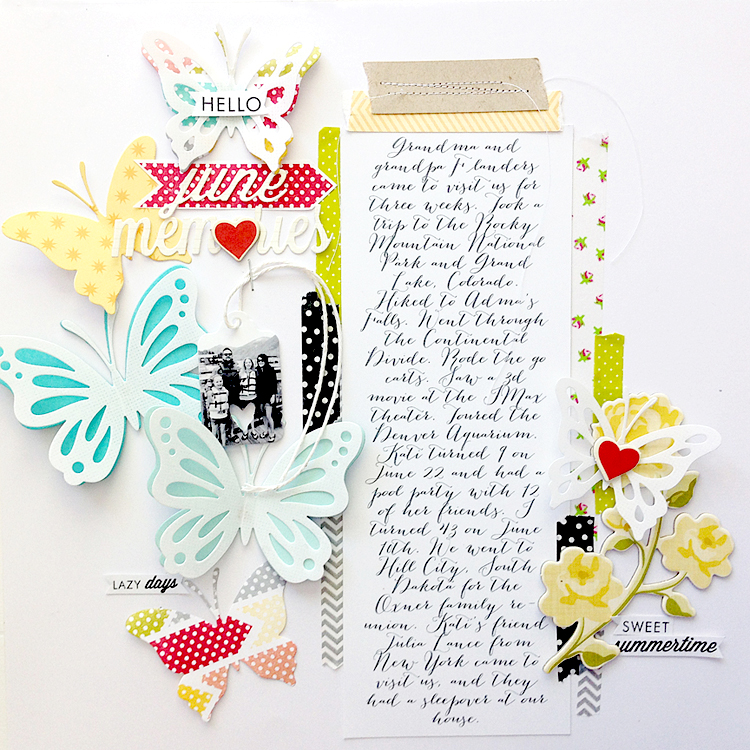 HELLO
june
memories
Grandma and
grandpa Flanders
came to visit us for
three weeks. Took a
trip to the Rocky
Mountain National
Park and Grand
Lake, Colorado.
Hiked to Adma's
Falls. Went through
the Continental
Divide. Rode the go
carts. Saw a 3d
movie at the IMax
theater. Toured the
Denver Aquarium.
Kati turned 9 on
June 22 and had a
pool party with 12
of her friends. I
turned 43 on June
16th. We went to
Hill City, South
Dakota for the
Oxner family re-
union. Kati's friend
Julia Lance from
New York came to
visit us, and they
had a sleepover at our
house.
LAZY days
SWEET
summertime